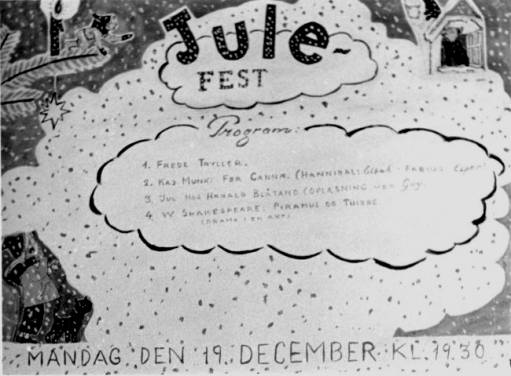 Jule-
FEST
Program:
1. FREDE TRYLLER.
2. KAJ MUNK: FØR CANNÆ. (HANNIBAL:
3. JUL HOS HARALD BLÅTAND (OPLÆSNING VED Guy.
4. W. SHAKESPEARE: PIRAMUS OG THISBE
(DRAMA I EN AKT)
MANDAG DEN 19. DECEMBER KL. 19.30